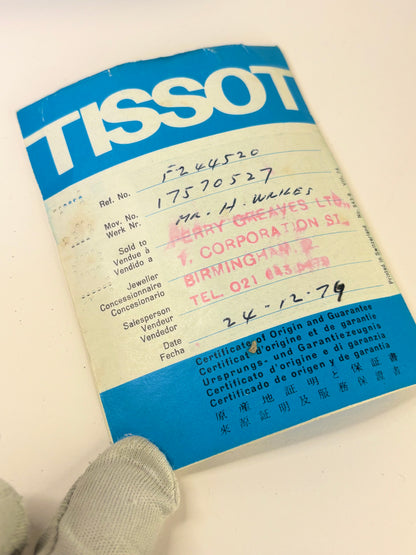 TISSOT
Ref. No. F244520
Mov. No.
Werk Nr. 17570527
Sold to
Vendue à
Vendido a
MR. H. WRILES
Jeweller
Concessionnaire
Concesionario
PERRY GREAVES LTD.
1, CORPORATION ST.
BIRMINGHAM, 2.
TEL. 021 643
Salesperson
Vendeur
Vendedor
Date
Fecha 24-12-79
Certificate of Origin and Guarantee
Certificat d'origine et de garantie
Ursprungs- und Garantiezeugnis
Certificato d'origine e di garanzia
Certificado de origen y de garantia
原産地証明と保証書
來源証明及服務保證書